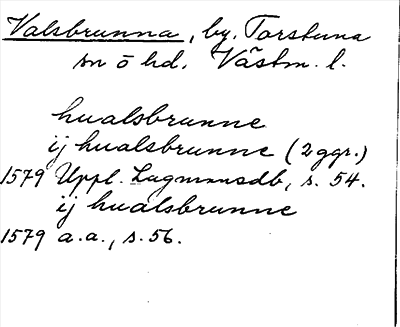 Valsbrunna, by. Torstuna
sn o hd. Västm. l.
hualsbrunne
ij hualsbrunne (2 ggr.)
1579 Uppl. Lagmansdb, s. 54.
ij hualsbrunne
1579 a.a., s. 56.